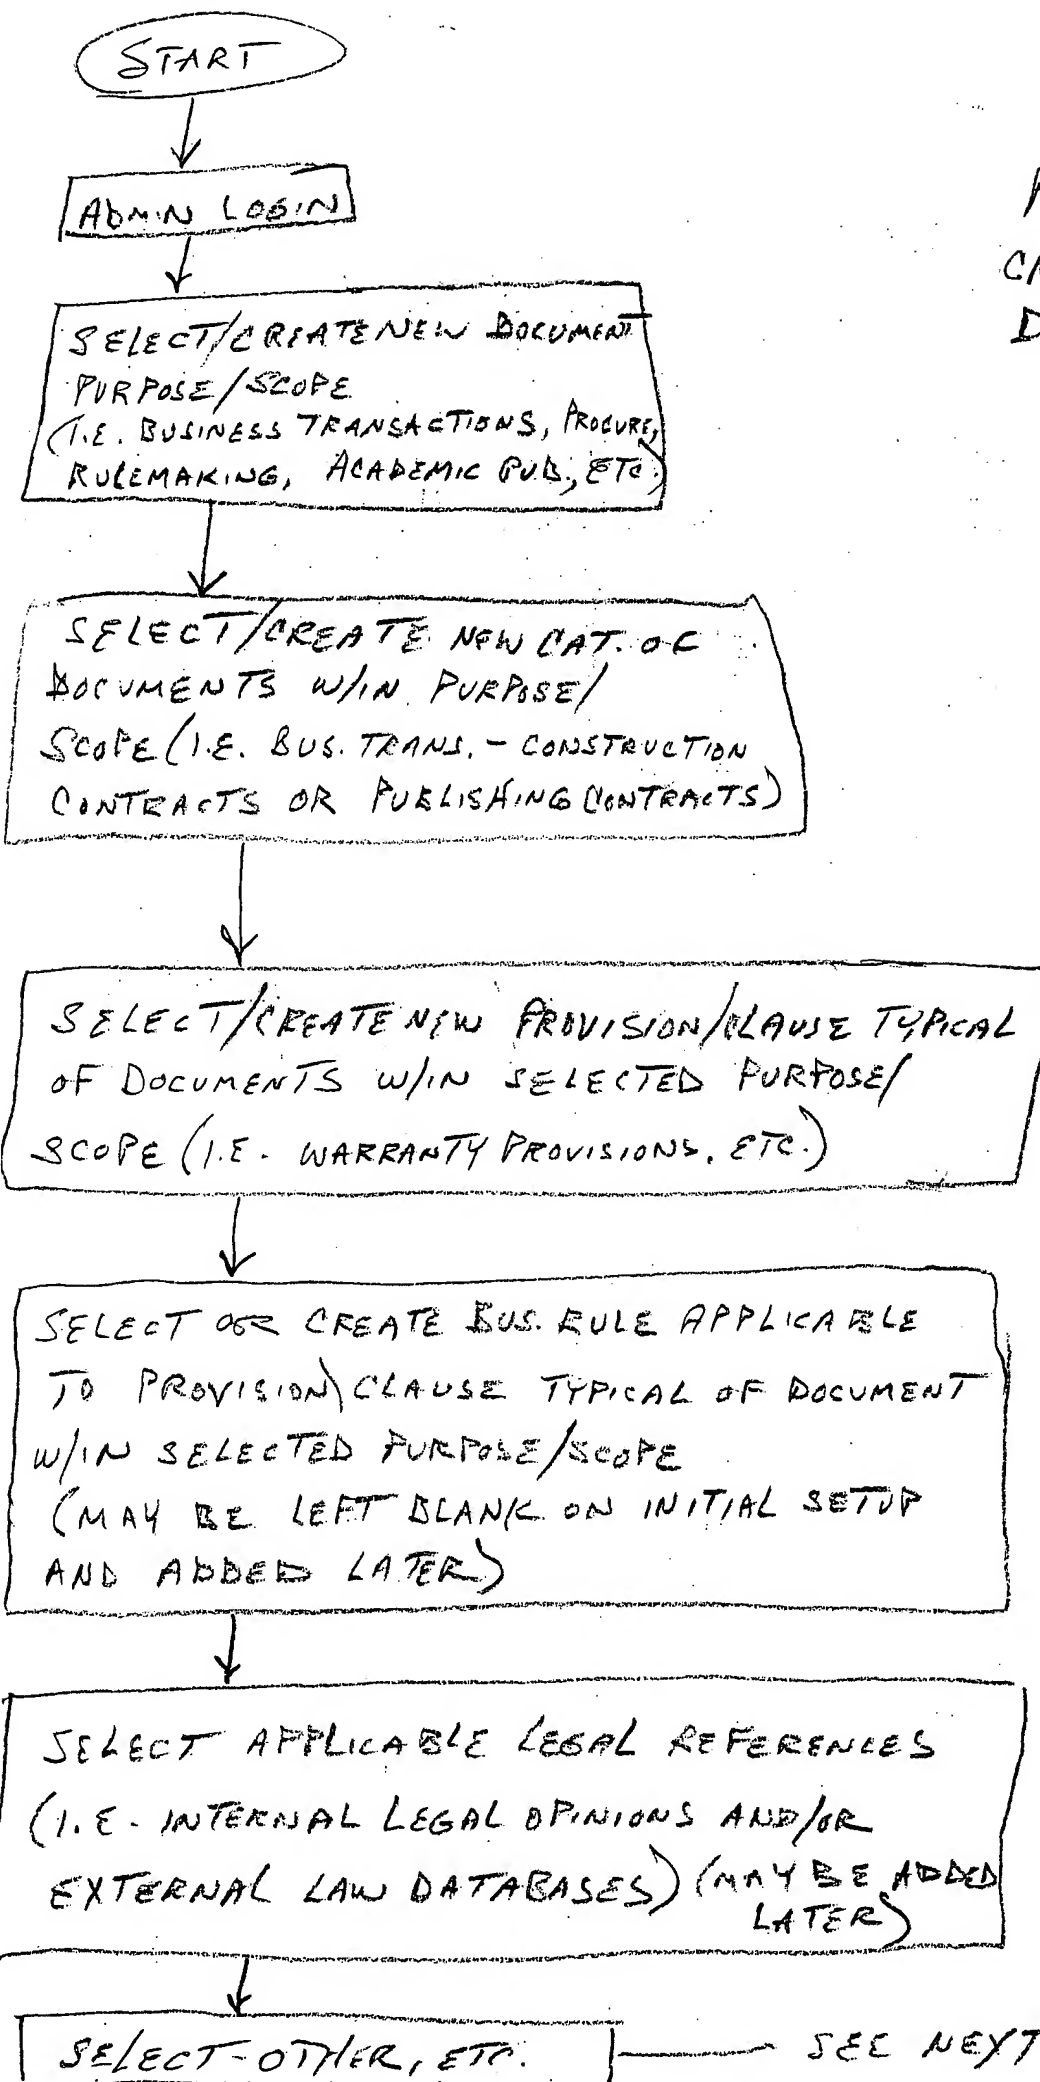 START
ADMIN LOGIN
SELECT/CREATE NEW DOCUMENT
PURPOSE/SCOPE
(I.E. BUSINESS TRANSACTIONS, PROCURE,
RULEMAKING, ACADEMIC PUB., ETC.)
SELECT/CREATE NEW CAT. OF
DOCUMENTS W/IN PURPOSE/
SCOPE (I.E. BUS. TRANS. - CONSTRUCTION
CONTRACTS OR PUBLISHING CONTRACTS)
SELECT/CREATE NEW PROVISION/CLAUSE TYPICAL
OF DOCUMENTS W/IN SELECTED PURPOSE/
SCOPE (I.E. WARRANTY PROVISIONS, ETC.)
SELECT OR CREATE BUS. RULE APPLICABLE
TO PROVISION\CLAUSE TYPICAL OF DOCUMENT
W/IN SELECTED PURPOSE/SCOPE
(MAY BE LEFT BLANK ON INITIAL SETUP
AND ADDED LATER)
SELECT APPLICABLE LEGAL REFERENCES
(I.E. INTERNAL LEGAL OPINIONS AND/OR
EXTERNAL LAW DATABASES) (MAY BE ADDED
LATER)
SELECT-OTHER, ETC. SEE NEXT